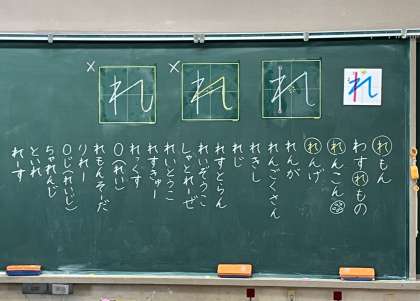 × れ
× れ
れ
れ
れもん
わすれもの
れんこん
れんげ
れんが
れんごくさん
れきし
れじ
れすとらん
れいぞうこ
しゃとれーぜ
れいとうこ
れすきゅー
れっくす
0(れい)
れもんそーだ
りれー
0じ(れいじ)
ちゃれんじ
といれ
れーす